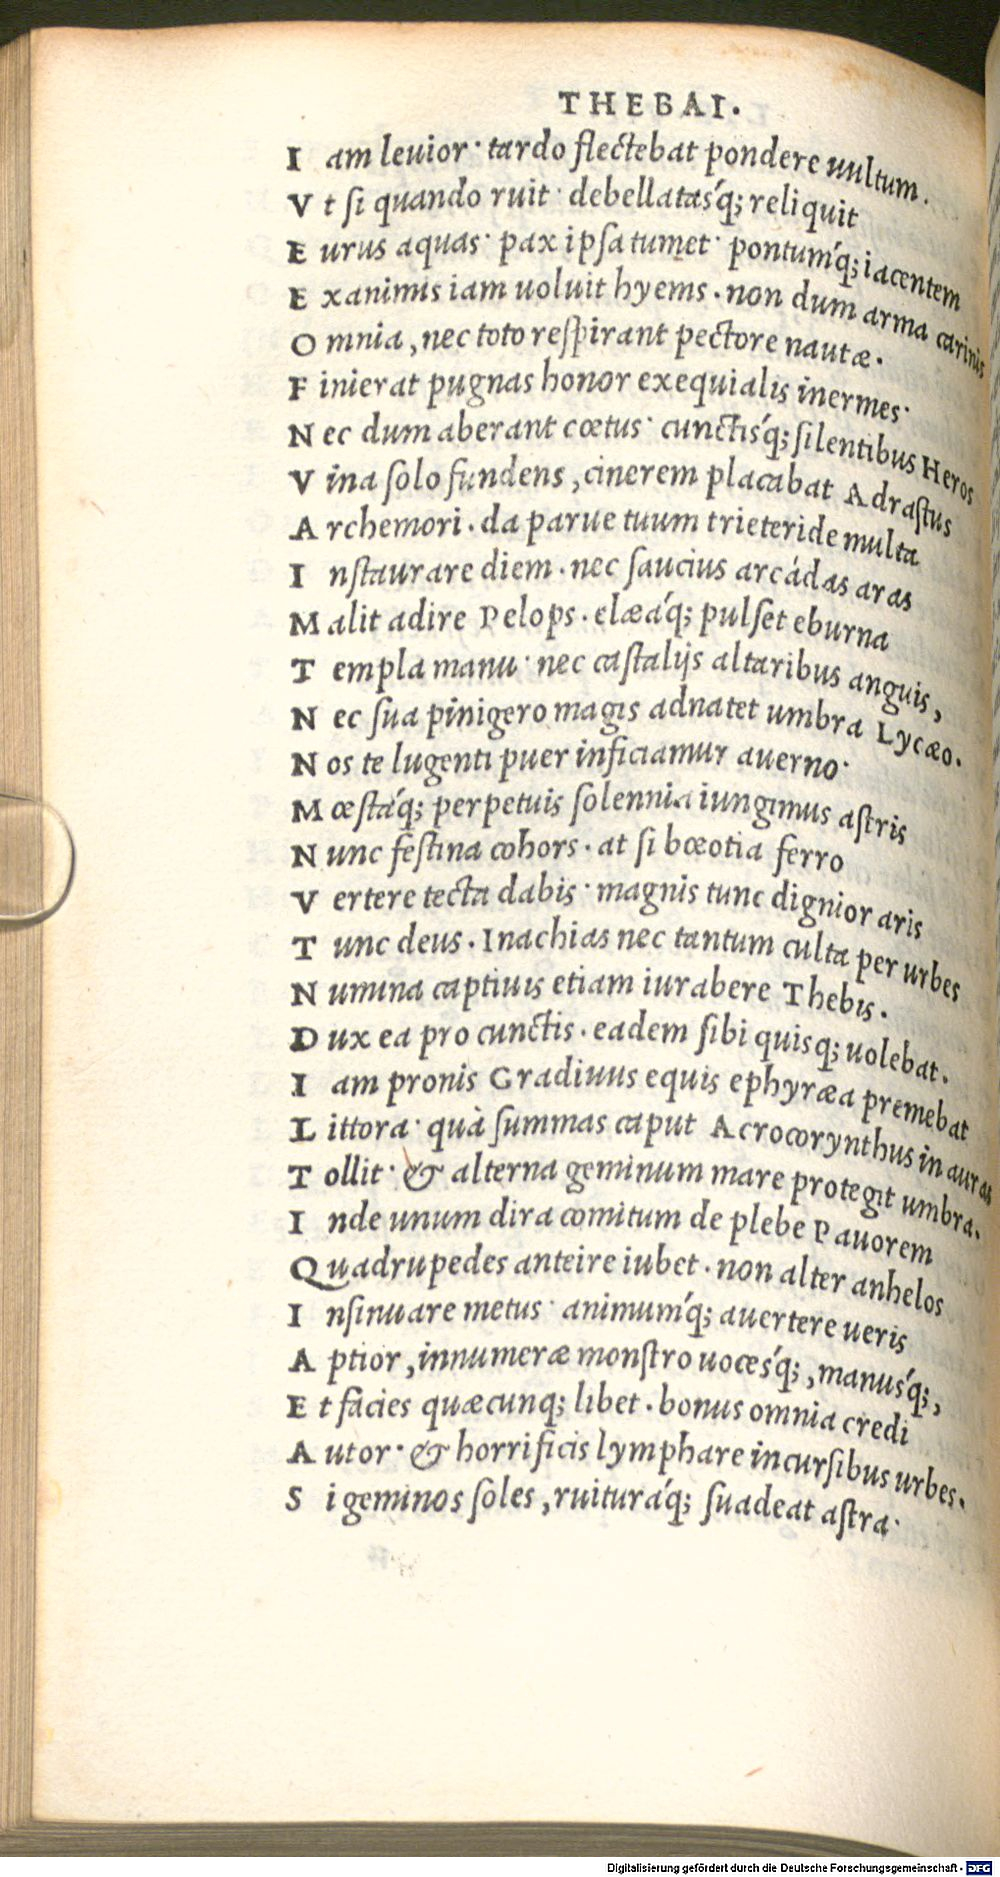 THEBAI.
I am leuior· tardo flectebat pondere uultum.
V t ſi quando ruit· debellatasq́; reliquit
E urus aquas· pax ipſa tumet· pontumq́; iacentem
E xanimis iam uoluit hyems. non dum arma carinis
O mnia, nec toto reſpirant pectore nautæ.
F inierat pugnas honor exequialis inermes·
N ec dum aberant cœtus· cunctisq́; ſilentibus Heros
V ina ſolo fundens, cinerem placabat Adraſtus
A rchemori. da parue tuum trieteride multa
I nſtaurare diem. nec ſaucius arcádas aras
M alit adire Pelops. elæáq́; pulſet eburna
T empla manu· nec caſtalijs altaribus anguis,
N ec ſua pinigero magis adnatet umbra Lycæo.
N os te lugenti puer inficiamur auerno·
M œſtáq́; perpetuis ſolennia iungimus aſtris
N unc feſtina cohors. at ſi bœotia ferro
V ertere tecta dabis· magnis tunc dignior aris
T unc deus. Inachias nec tantum culta per urbes
N umina captiuis etiam iurabere Thebis.
D ux ea pro cunctis. eadem ſibi quisq; uolebat.
I am pronis Gradiuus equis ephyræa premebat
L ittora· quà ſummas caput Acrocorynthus in auras
T ollit· & alterna geminum mare protegit umbra.
I nde unum dira comitum de plebe Pauorem
Q uadrupedes anteire iubet. non alter anhelos
I nſinuare metus· animumq́; auertere ueris
A ptior, innumeræ monſtro uocesq́;, manusq́;,
E t facies quæcunq; libet. bonus omnia credi
A utor· & horrificis lymphare incurſibus urbes.
S i geminos ſoles, ruituráq́; ſuadeat aſtra·
Digitalisierung gefördert durch die Deutsche Forschungsgemeinschaft · DFG